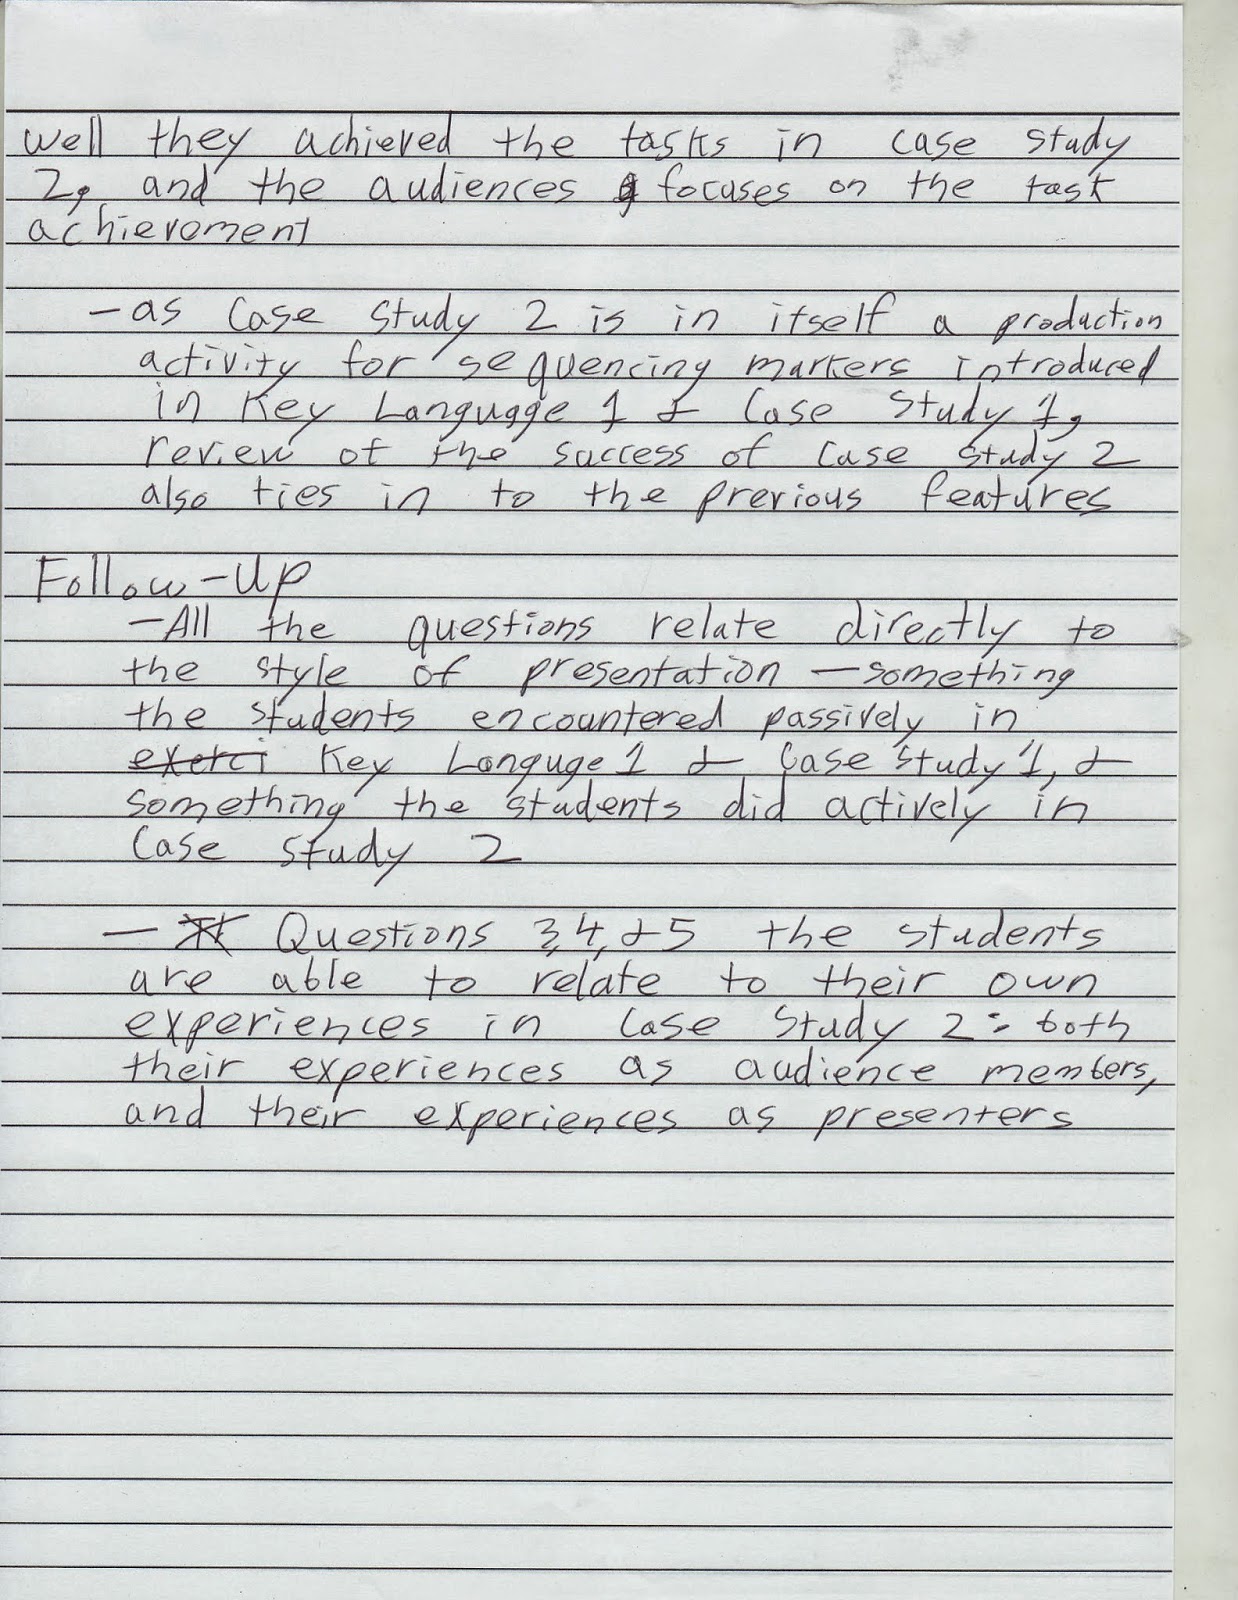 well they achieved the tasks in case study
2, and the audiences focuses on the task
achievement
- as Case Study 2 is in itself a production
activity for sequencing markers introduced
in Key Language 1 & Case Study 1,
review of the success of Case Study 2
also ties in to the previous features
Follow-Up
- All the questions relate directly to
the style of presentation - something
the students encountered passively in
exerci Key Languge 1 & Case Study 1, &
something the students did actively in
Case Study 2
- Questions 3, 4, & 5 the students
are able to relate to their own
experiences in Case Study 2: both
their experiences as audience members,
and their experiences as presenters